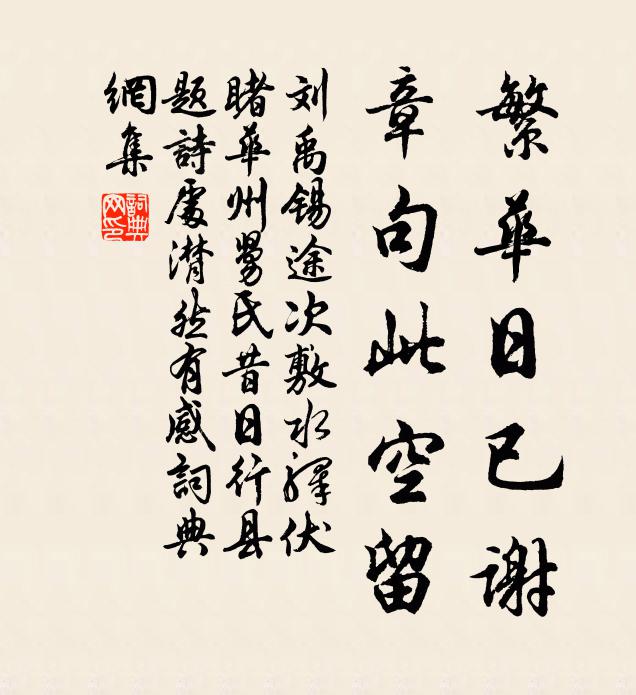 繁華日已謝
章句此空留
刘禹锡途次敷水驛伏
睹華州舅氏昔日行县
题詩處潸然有感詞典
網集
詞典网印